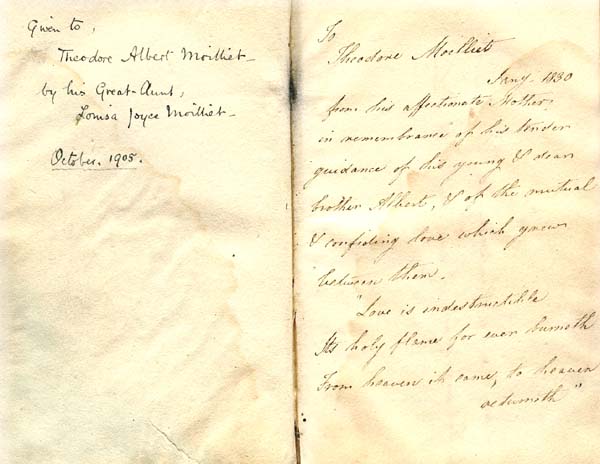 Given to,
Theodore Albert Moilliet -
by his Great-Aunt,
Louisa Joyce Moilliet -
October. 1905.
To
Theodore Moilliet
Jany. 1830
from his affectionate Mother,
in remembrance of his tender
guidance of his young & dear
brother Albert, & of the mutual
& confiding love which grew
between them.
"Love is indestructible
Its holy flame for ever burneth
From heaven it came, to heaven
returneth"